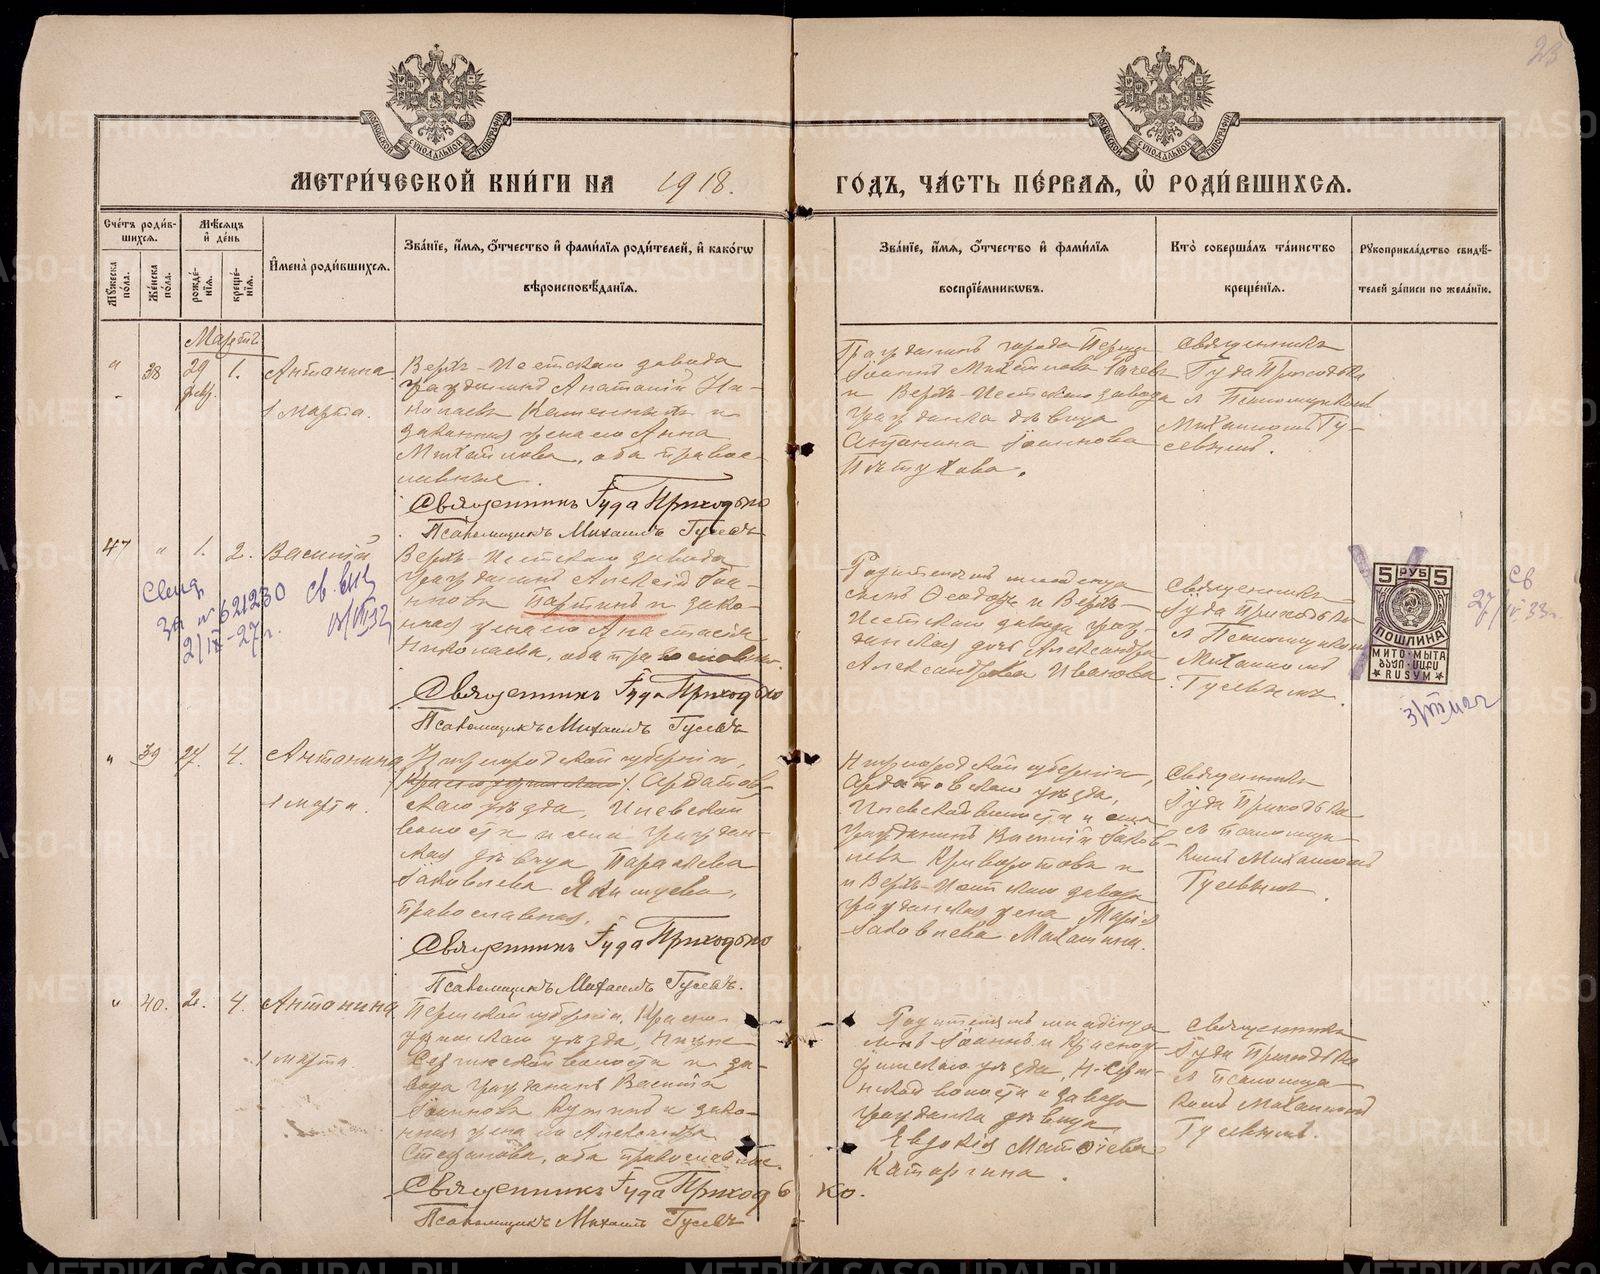 23
МОСКОВСКОЙ СѴНОДАЛЬНОЙ ТИПОГРАФІИ
МОСКОВСКОЙ СѴНОДАЛЬНОЙ ТИПОГРАФІИ
МЕТРИ́ЧЕСКОЙ КНИ́ГИ НА 1918.
ГО́ДЪ, ЧА́СТЬ ПЕ́РВАѦ, Ѽ РОДИ́ВШИХСѦ.
Сче́тъ роди́вшихсѧ.
Мꙋжеска по́ла.
Же́нска по́ла.
Мѣ́сѧцъ и҆ де́нь
рожде́нїѧ.
креще́нїѧ.
И҆мена̀ роди́вшихсѧ.
Зва́нїе, и҆́мѧ, ѻ҆́тчество и҆ фами́лїѧ роди́телей, и҆ како́гѡ
вѣроисповѣ́данїѧ.
Зва́нїе, и҆́мѧ, ѻ҆́тчество и҆ фами́лїѧ
воспрїе́мникѡвъ.
Кто̀ соверша́лъ та́инство
креще́нїѧ.
Рꙋкоприкла́дство свидѣ́телей за́писи по жела́нїю.
Мартъ
" 38 29 февр. 1.
Антонина
1 марта.
Верхъ-Исетскаго завода
гражданинъ Анатолій Ни-
колаевъ и
законная жена его Анна
Михайлова, оба правос-
лавные.
Священникъ Іуда Приходько
Псаломщикъ Михаилъ Гусевъ
Гражданинъ города Перми
Іоаннъ Михайловъ
и Верхъ-Исетскаго завода
гражданка дѣвица
Антонина Іоаннова
Пѣтухова.
Священникъ
Іуда Приходько
с Псаломщикомъ
Михаиломъ Гу-
севымъ.
47 " 1. 2.
Василій
Верхъ-Исетскаго завода
гражданинъ Алексій Іоа-
нновъ и зако-
нная жена его Анастасія
Николаева, оба православные.
Священникъ Іуда Приходько
Псаломщикъ Михаилъ Гусевъ
за № 621230
2/IX-27г.
Родителей младенца
сынъ Ѳеодоръ и Верхъ-
Исетскаго завода граж-
данская дочь Александра
Александрова Иванова.
Священникъ
Іуда Приходько
с Псаломщикомъ
Михаиломъ
Гусевымъ.
5 РУБ 5
ПОШЛИНА
МИТО·МЫТА
RUSYM
" 39 27. 4.
Антонина
1 марта.
Нижегородской губерніи,
Ардатов-
скаго уѣзда, Илевской
волости и села граждан-
ская дѣвица Параскева
Іаковлева Якимцева,
православная.
Священникъ Іуда Приходько
Псаломщикъ Михаилъ Гусевъ.
Нижегородской губерніи,
Ардатовскаго уѣзда,
Илевской волости и села
гражданинъ Василій Іаков-
левъ Криворотовъ и
и Верхъ-Исетскаго завода
гражданская жена Марія
Іаковлева Махалина.
Священникъ
Іуда Приходько
с псаломщи-
комъ Михаиломъ
Гусевымъ
" 40. 2. 4.
Антонина
1 марта
Пермской губерніи, Красно-
уфимскаго уѣзда, Нижне-
Сергинской волости и за-
вода гражданинъ Василій
Іоанновъ и зако-
нная жена его Александра
Стефанова, оба православные.
Священникъ Іуда Приходько.
Псаломщикъ Михаилъ Гусевъ
Родителей младенца
сынъ Іоаннъ и Красноу-
фимскаго уѣзда, Н-Серги-
нской волости и завода
гражданка дѣвица
Евдокія Матѳіева
Катаргина.
Священникъ
Іуда Приходько
с псаломщи-
комъ Михаиломъ
Гусевымъ.
METRIKI.GASO-URAL.RU